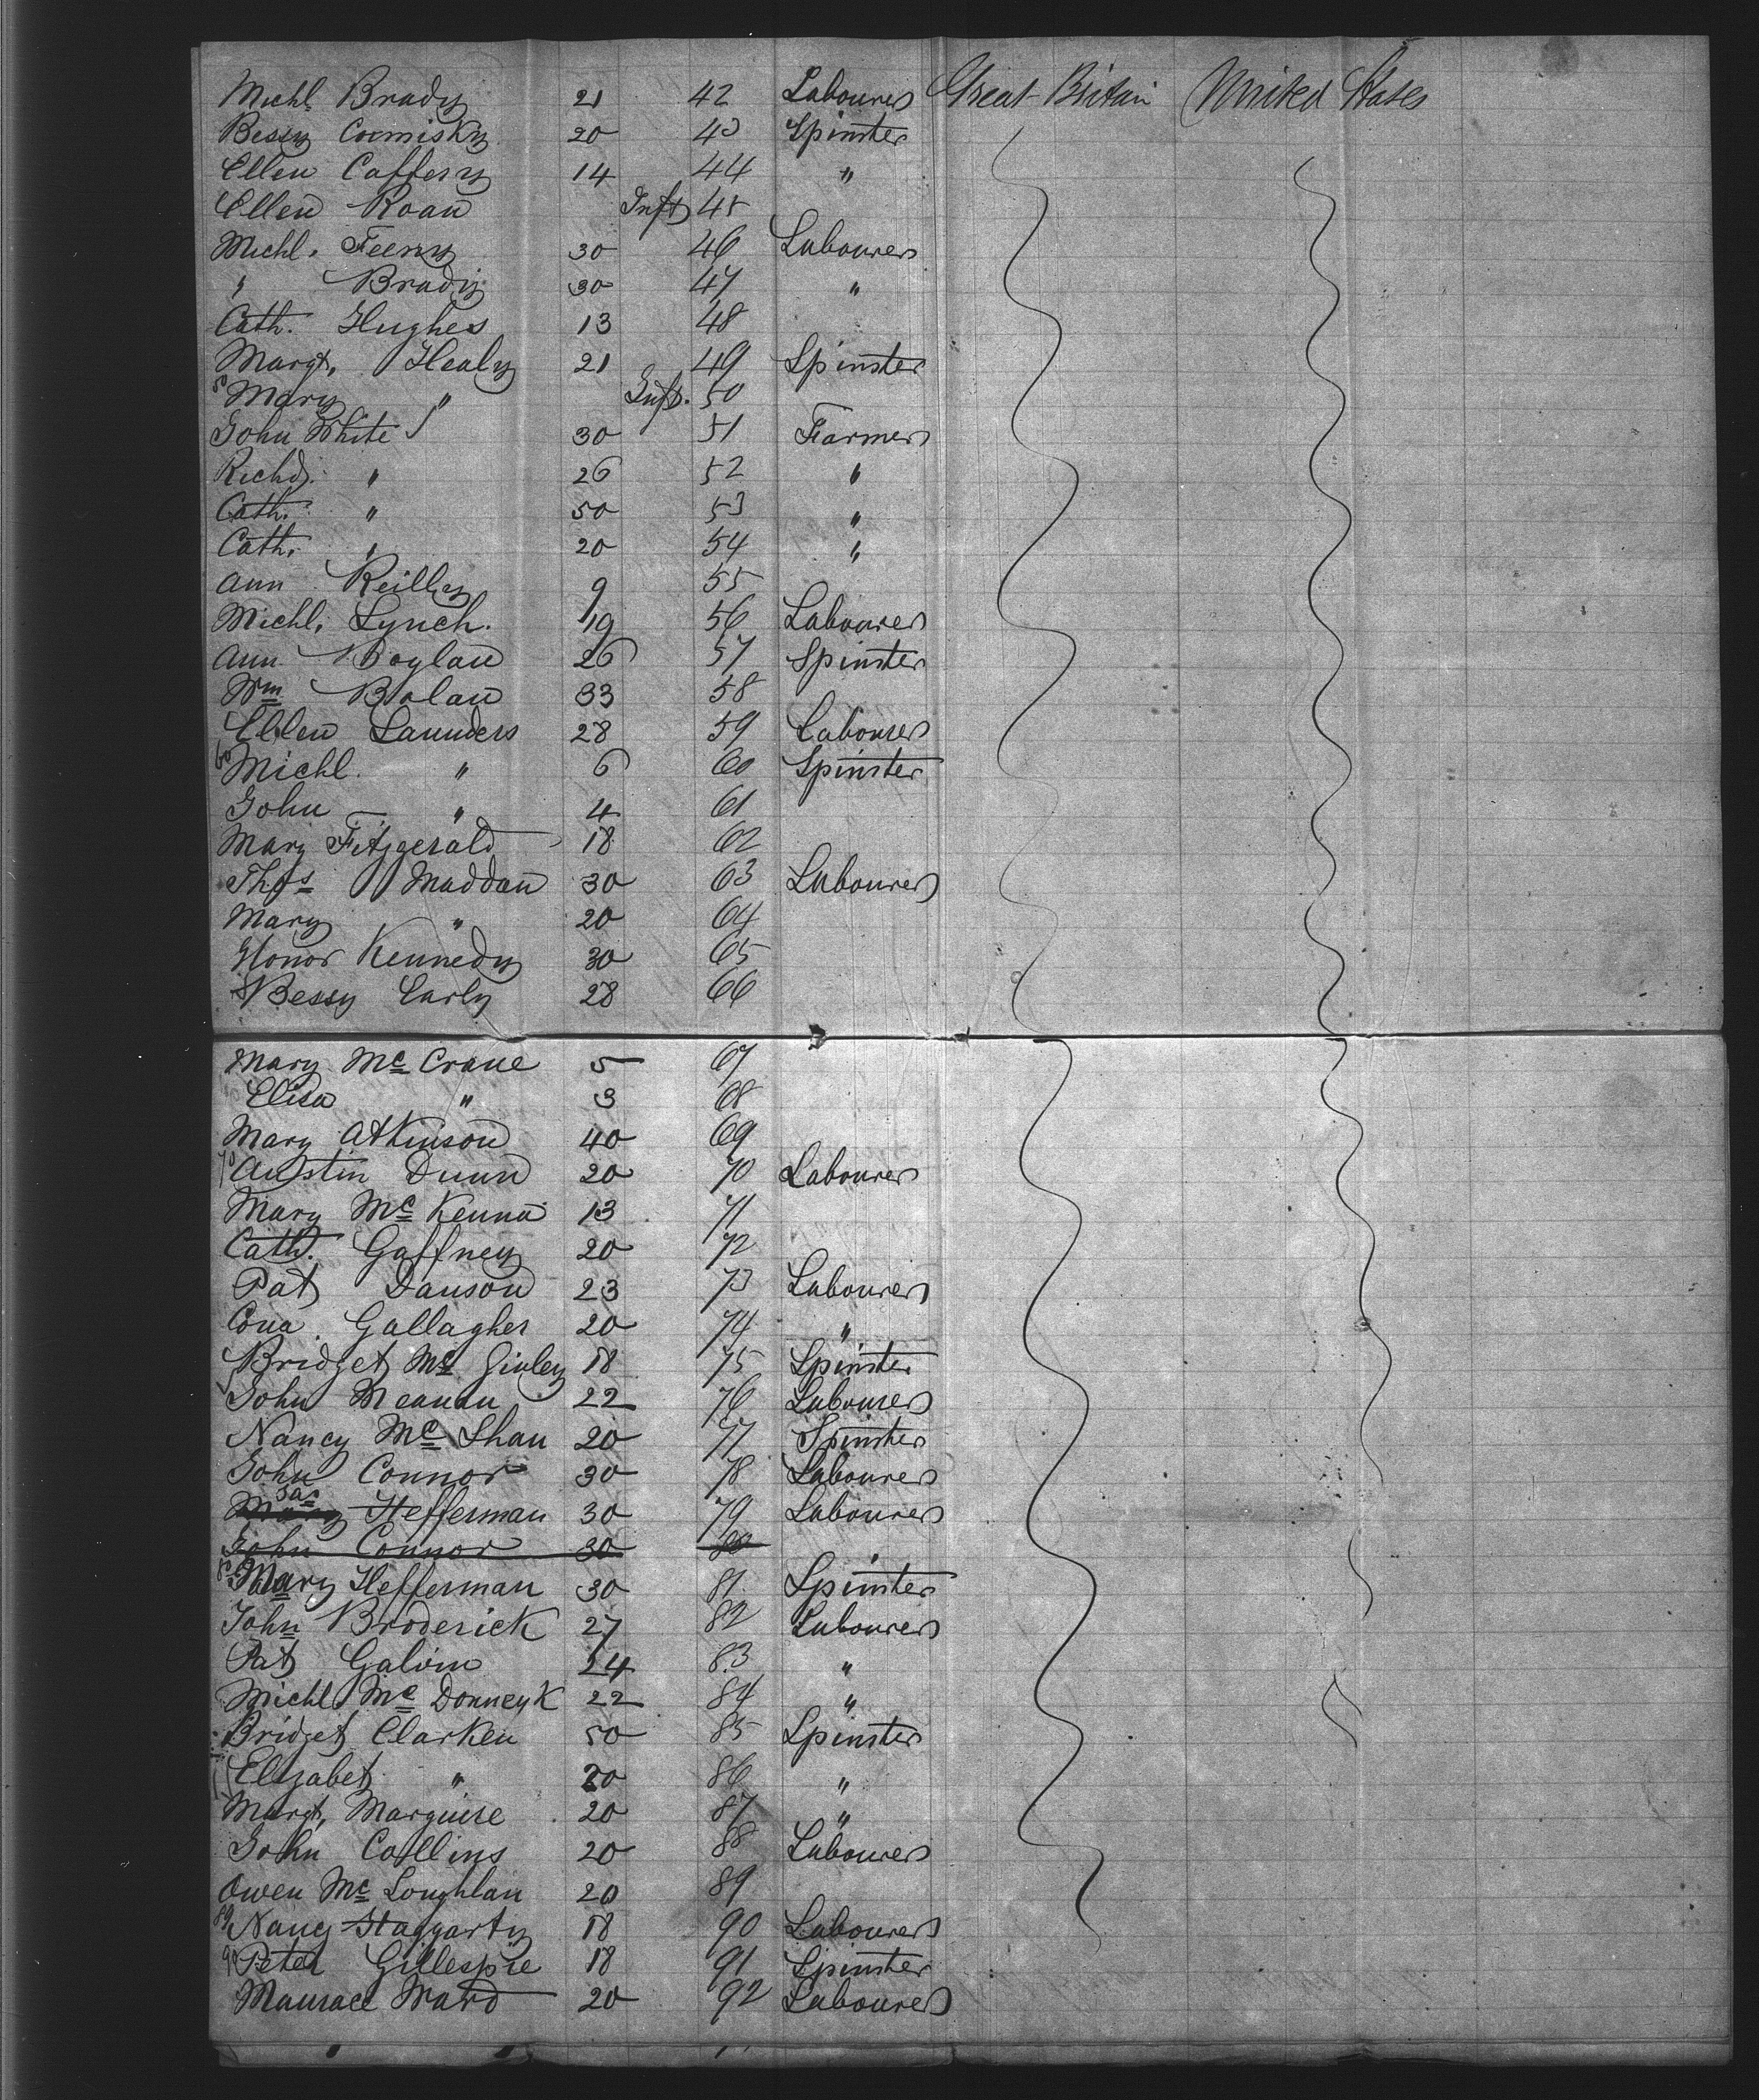 Michl Brady 21 42 Labourer Great Britain United States
Bessy Cormisky 20 43 Spinster
Ellen Caffery 14 44 "
Ellen Roan Inft 45
Michl. Feeny 30 46 Labourer
" Brady 30 47 "
Cath. Hughes 13 48
Margt. Healy 21 49 Spinster
Mary " Inft. 50
John White 30 51 Farmer
Richd. " 26 52 "
Cath. " 50 53 "
Cath. " 20 54 "
Ann Reilly 9 55
Michl. Lynch. 19 56 Labourer
Ann Boylan 26 57 Spinster
Wm Bolan 33 58
Ellen Saunders 28 59 Labourer
60 Michl. " 6 60 Spinster
John " 4 61
Mary Fitzgerald 18 62
Thos Maddan 30 63 Labourer
Mary " 20 64
Honor Kennedy 30 65
Bessy Carly 28 66
Mary Mc Crane 5 67
Elisa " 3 68
Mary Atkinson 40 69
70 Austin Dunn 20 70 Labourer
Mary Mc Kenna 13 71
Cath. Gaffney 20 72
Pat Danson 23 73 Labourer
Cona Gallagher 20 74 "
Bridget Mc Ginley 18 75 Spinster
John Meanan 22 76 Labourer
Nancy Mc Shan 20 77 Spinster
John Connor 30 78 Labourer
Jas Hefferman 30 79 Labourer
John Connor 30 80
Mary Hefferman 30 81 Spinster
John Broderick 27 82 Labourer
Pat Galvin 24 83 "
Michl Mc Donneyk 22 84 "
Bridget Clarken 50 85 Spinster
Elizabet " 20 86 "
Margt. Marguire 20 87 "
John Collins 20 88 Labourer
Owen Mc Loughlan 20 89
89 Nancy Haggarty 18 90 Labourer
90 Peter Gillespie 18 91 Spinster
Manrace Ward 20 92 Labourer